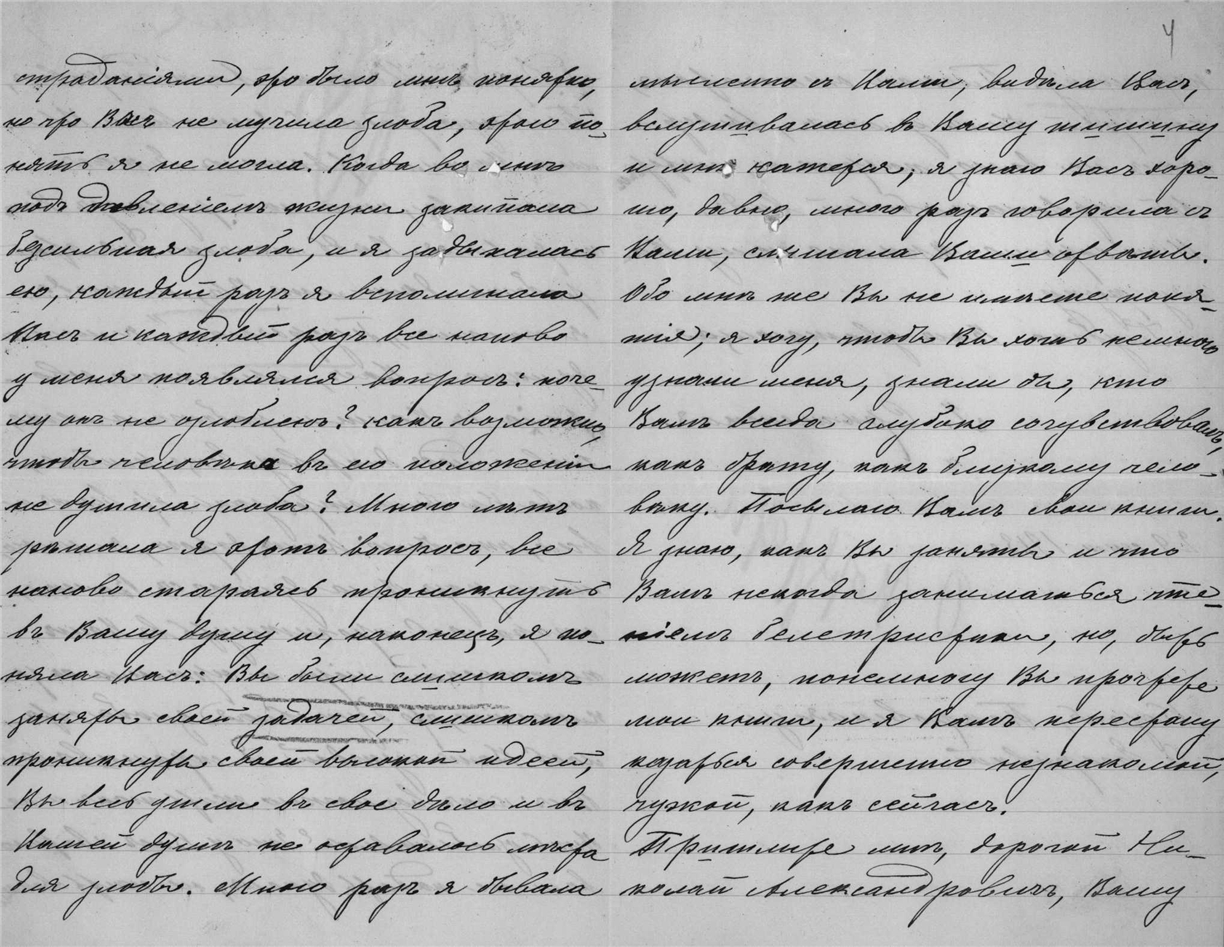 страданіями, это было мнѣ понятно,
но что Васъ не мучила злоба, этого по-
нять я не могла. Когда во мнѣ
подъ давленіемъ жизни закипала
безсильная злоба, и я задыхалась
ею, каждый разъ я вспоминала
Васъ и каждый разъ все наново
у меня появлялся вопросъ: поче-
му онъ не озлобленъ? какъ возможно,
чтобы человѣка въ его положеніи
не душила злоба? Много лѣтъ
рѣшала я этотъ вопросъ, все
наново стараясь проникнуть
въ Вашу душу и, наконецъ, я по-
няла Васъ: Вы были слишкомъ
заняты своей задачей, слишкомъ
проникнуты своей высокой идеей,
Вы весь ушли въ свое дѣло и въ
Вашей душѣ не оставалось мѣста
для злобы. Много разъ я бывала
4
мысленно съ Вами, видѣла Васъ,
вслушивалась въ Вашу тишину
и мнѣ кажется, я знаю Васъ хоро-
шо, давно, много разъ говорила съ
Вами, слышала Ваши отвѣты.
Обо мнѣ же Вы не имѣете поня-
тія; я хочу, чтобы Вы хоть немного
узнали меня, знали бы, кто
Вамъ всегда глубоко сочувствовалъ,
какъ брату, какъ близкому чело-
вѣку. Посылаю Вамъ свои книги.
Я знаю, какъ Вы заняты и что
Вамъ некогда заниматься чте-
ніемъ белетристики, но, быть
можетъ, понемногу Вы прочтете
мои книги, и я Вамъ перестану
казаться совершенно незнакомой,
чужой, какъ сейчасъ.
Пришлите мнѣ, дорогой Ни-
колай Александровичъ, Вашу